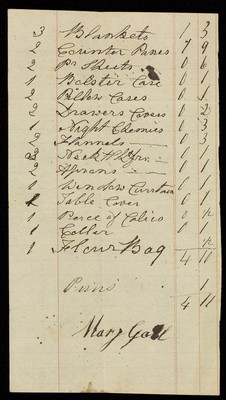 3 Blankets 1 3
2 Counter Panes 7 9
2 Pr Sheets 0 6
1 Bolster Case 0 1
2 Pillow Cases 0 1
2 Drawers Covers 0 2
2 Night Chemies 0 3
2 Flannels 0 3
3 Neck 0 1
2 Aprons 0 1
1 Window Curtain 0 1
1 Table Cover 0 1
1 Piece of Calico 0 ½
1 Collar 1
1 Flour Bag ½
4 11
Pins 1
4 11
Mary